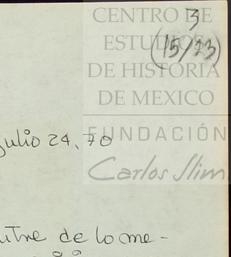 CENTRO DE
3
ESTUDIOS
(15/23)
DE HISTORIA
DE MEXICO
FUNDACIÓN
Carlos Slim
julio 24, 70
de lo me-